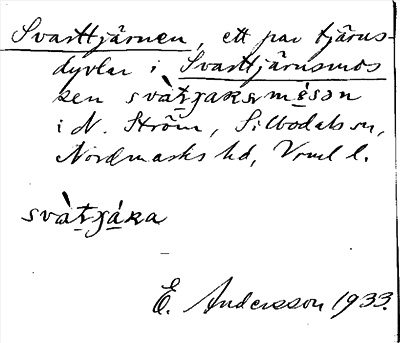 Svarttjärnen, ett par tjärns-
dyvlar i Svarttjärnsmos
sen svàt̠jakɐrmɵ́sən
i N. Ström, Silbodals sn,
Nordmarks hd, Vrml l.
svàt̠já̠ka
E. Andersson 1933.